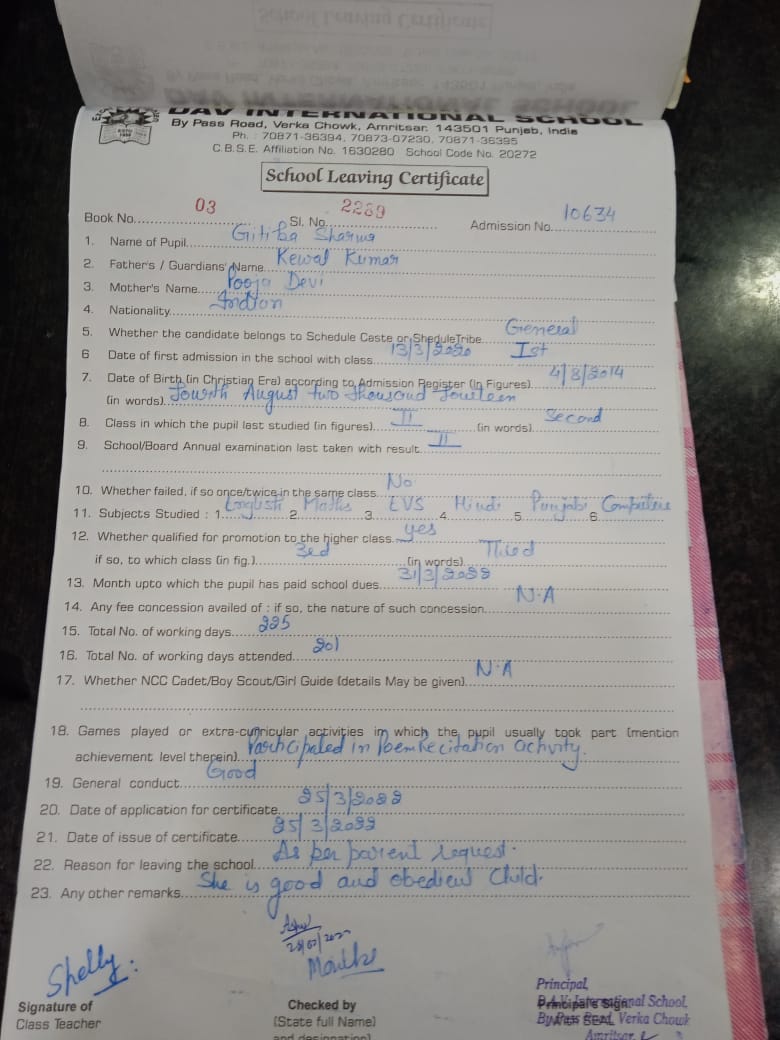 School Leaving Certificate
DAV INTERNATIONAL SCHOOL
By Pass Road, Verka Chowk, Amritsar. 143501 Punjab, India
Ph. : 70871-36394, 70873-07230, 70871-36395
C.B.S.E. Affiliation No. 1630280 School Code No. 20272
School Leaving Certificate
Book No. 03 Sl. No. 2289 Admission No. 10634
1. Name of Pupil Gitika Sharma
2. Father's / Guardians' Name Kewal Kumar
3. Mother's Name Pooja Devi
4. Nationality Indian
5. Whether the candidate belongs to Schedule Caste or SheduleTribe General
6 Date of first admission in the school with class 13/3/2020 Ist
7. Date of Birth (in Christian Era) according to Admission Register (in Figures) 4/8/2014
(in words) Fourth August two thousand fourteen
8. Class in which the pupil last studied (in figures) II (in words) Second
9. School/Board Annual examination last taken with result II
10. Whether failed, if so once/twice in the same class No
11. Subjects Studied : 1. English 2. Maths 3. EVS 4. Hindi 5. Punjabi 6. Computers
12. Whether qualified for promotion to the higher class yes
if so, to which class (in fig.) 3rd (in words) Third
13. Month upto which the pupil has paid school dues 31/3/2022
14. Any fee concession availed of : if so, the nature of such concession N.A
15. Total No. of working days 225
16. Total No. of working days attended 201
17. Whether NCC Cadet/Boy Scout/Girl Guide (details May be given) N.A
18. Games played or extra-curricular activities in which the pupil usually took part (mention
achievement level therein) Participated in Poem Recitation activity.
19. General conduct Good
20. Date of application for certificate 25/3/2022
21. Date of issue of certificate 25/3/2022
22. Reason for leaving the school As per parent request.
23. Any other remarks She is good and obedient child.
Shelly
Signature of
Class Teacher
Checked by
(State full Name)
and designation)
Principal,
D.A.V. International School,
Principal's Sign.
By Pass Road, Verka Chowk
With SEAL
Amritsar